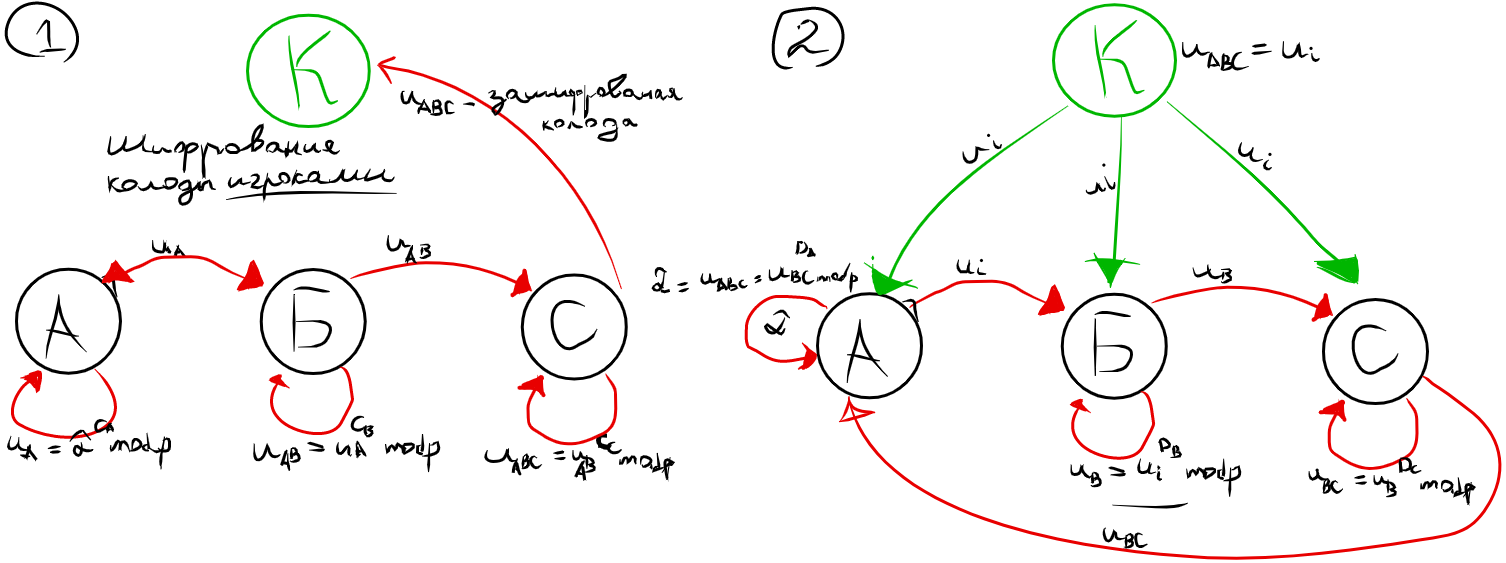 1
К
u_ABC - зашифрованая
колода
Шифрование
колоды игроками
u_A
u_AB
А
Б
С
u_A = â^C_A mod p
u_AB = u_A^C_B mod p
u_ABC = u_AB^C_C mod p
2
К
u_ABC = u_i
u_i
u_i
u_i
â = u_ABC = u_BC^D_A mod p
u_i
u_B
â
А
Б
С
u_B = u_i^D_B mod p
u_BC = u_B^D_C mod p
u_BC